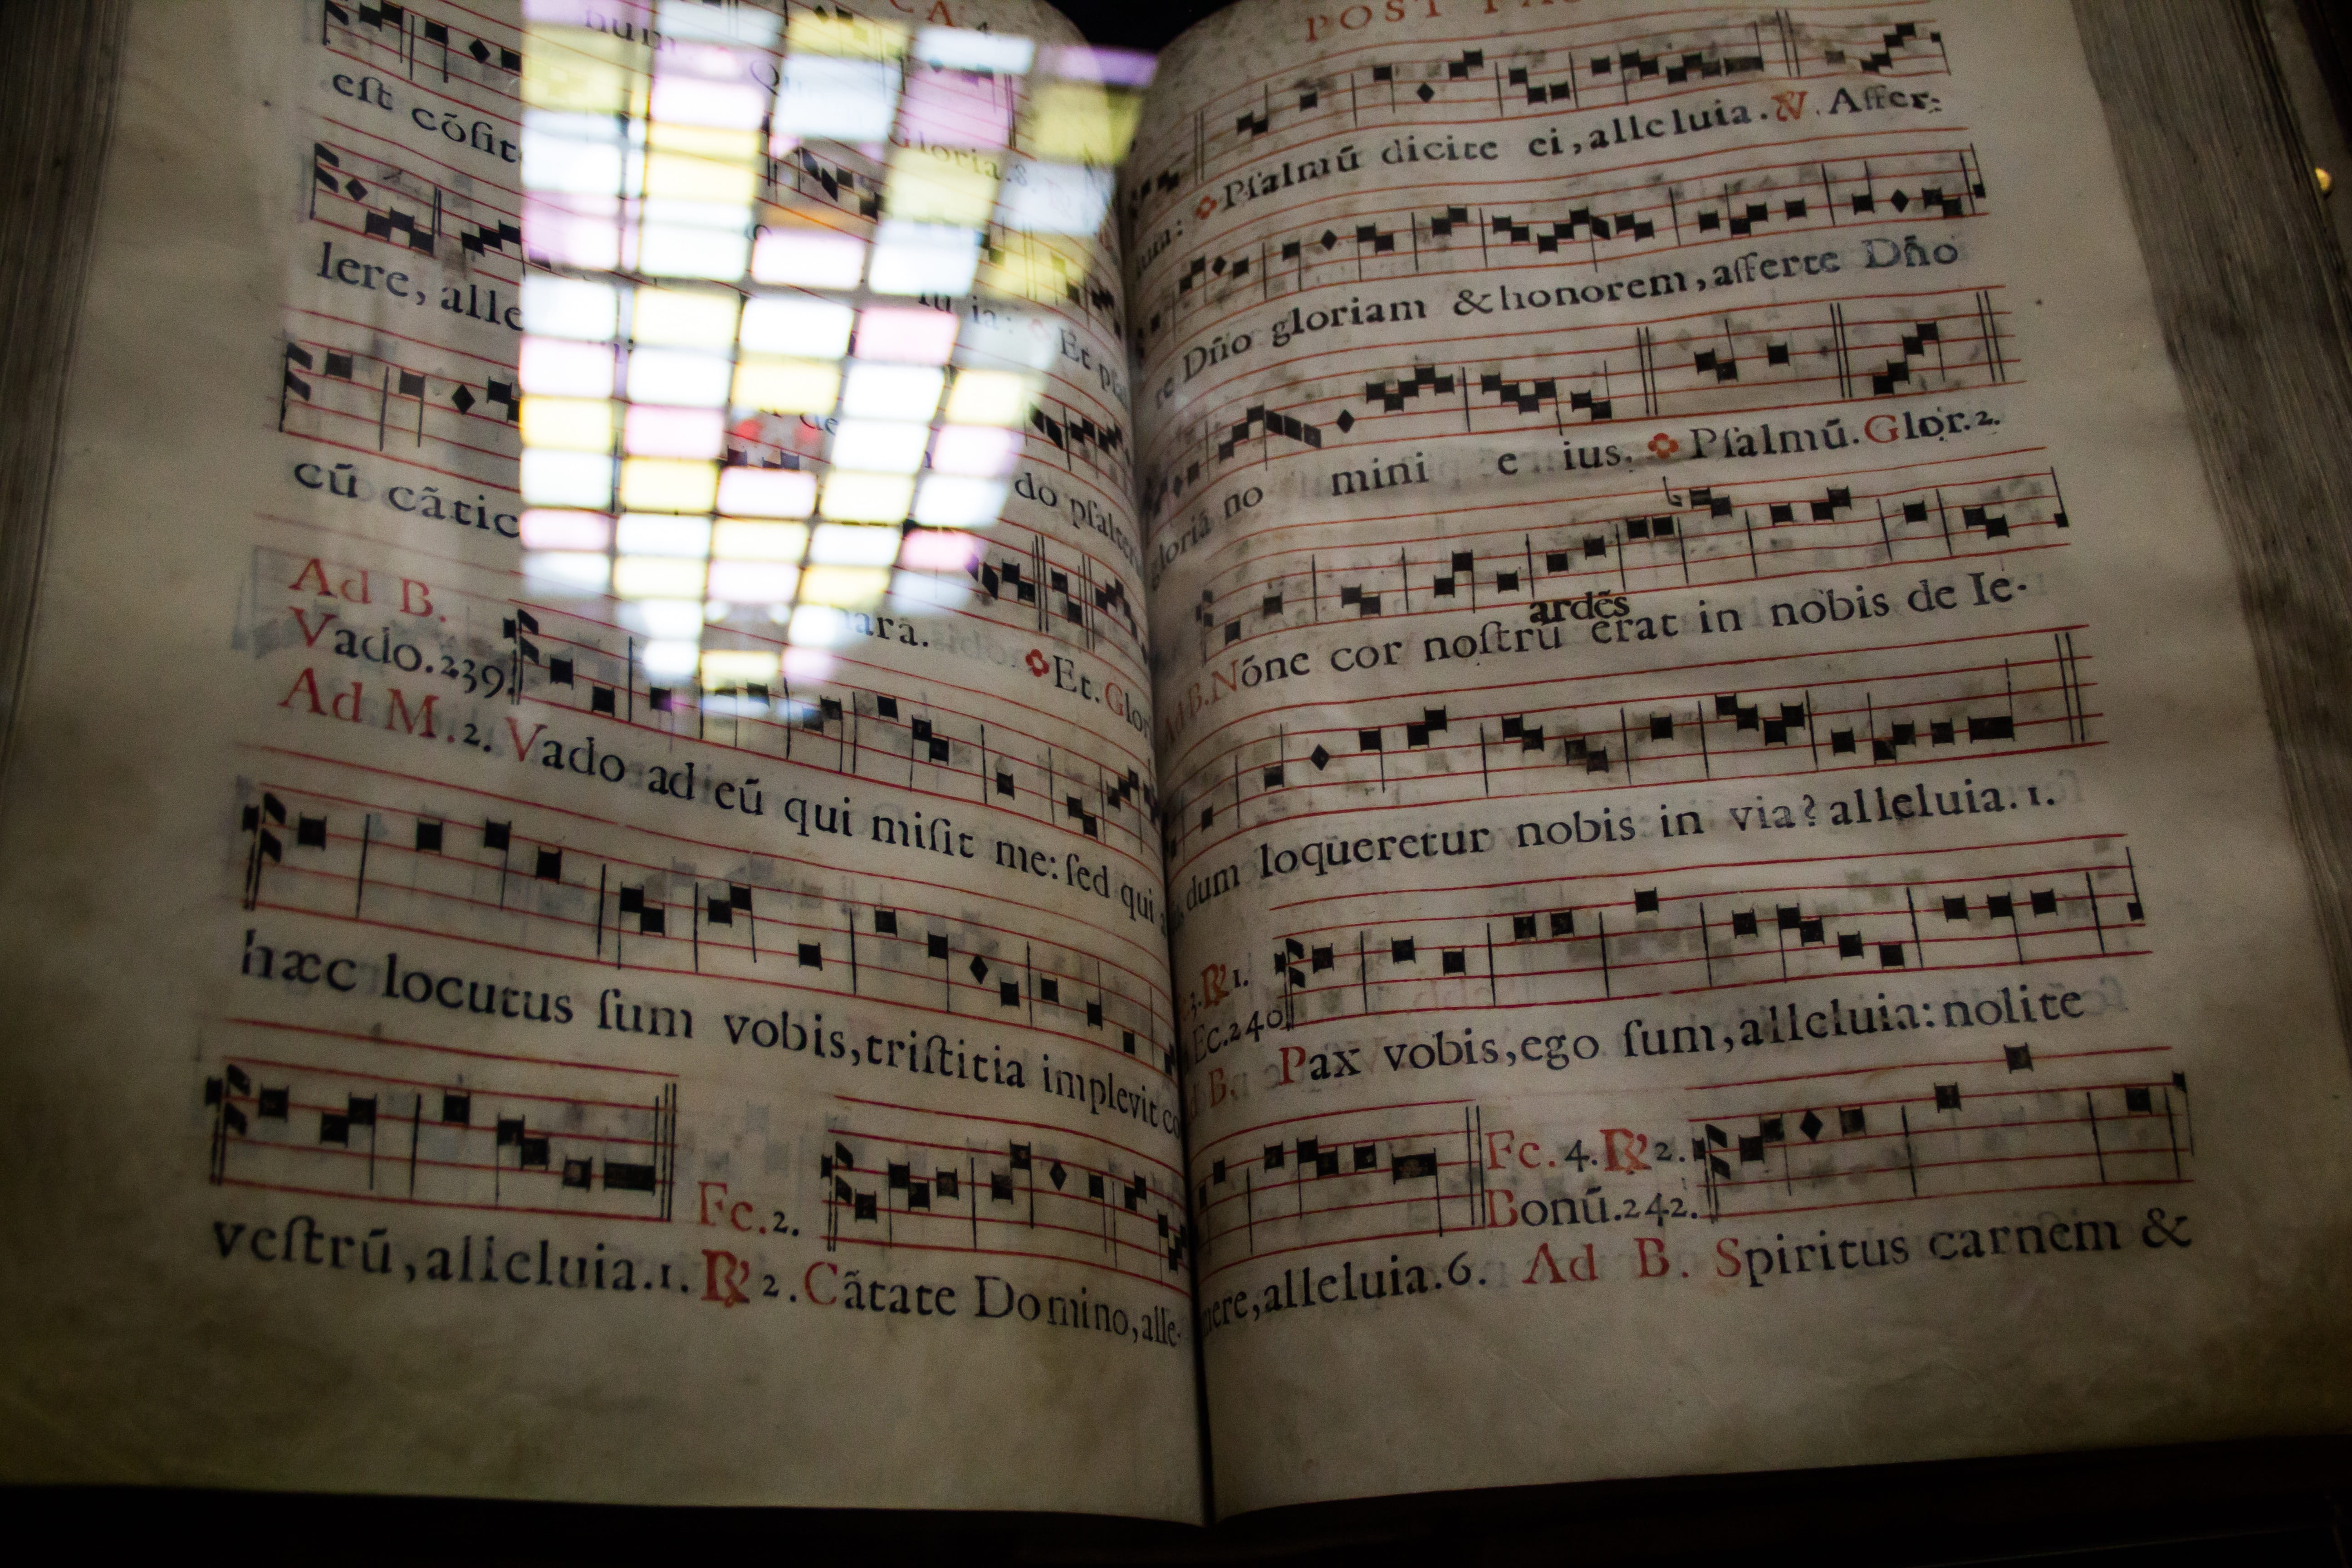 CA
num
est cõfit
Gloria.8.
lere, alle
lu ia: Et
cũ cãtic
do psalte
Ad B.
hara.
Et. Glor
Vado.239.
Ad M.2. Vado ad eũ qui misit me: sed qui
hæc locutus sum vobis, tristitia implevit co
Fe.2.
vestrũ, alleluia.1. ℟ 2. Cãtate Domino, alle-
POST
luia: Psalmũ dicite ei, alleluia. ℣. Affer-
te Dño gloriam & honorem, afferte Dño
gloriã no mini e ius. Psalmũ. Glor.2.
ardẽs
Ad B. Nõne cor nostrũ erat in nobis de Ie-
dum loqueretur nobis in via? alleluia.1.
3. ℟ 1.
Ec.240.
B. Pax vobis, ego sum, alleluia: nolite
Fe. 4. ℟ 2.
Bonũ.242.
mere, alleluia.6. Ad B. Spiritus carnem &